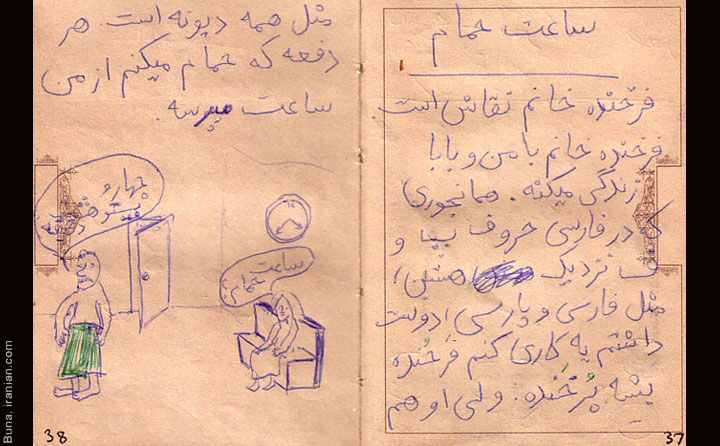 ساعت حمام
فرخنده خانم نقاش است.
فرخنده خانم با من و بابا
زندگی میکنه. همانجوری
که در فارسی حروف پ و
ف نزدیک هستن،
مثل فارسی و پارسی، دوست
داشتم یه کاری کنم فَرخُنده
بشه پُرخَنده. ولی او هم
37
مثل همه دیونه است. هر
دفعه که حمام میکنم از من
ساعت میپرسه.
چهار و
بیست و هفت
دقیقه
ساعت
حمام؟
38
Buna, iranian.com